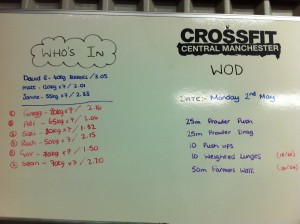 WHO'S IN
David E - 40kg
Matt - 120kg x 7 / 2.01
Janine - 55kg x 7 / 2.38
70kg x 7 / 2.16
65kg x 7 / 2.04
80kg x 7 / 1.52
Rich - 50kg x 7 / 2.15
70kg x 7 / 1.50
Sean - 70kg x 7 / 2.20
CROSSFIT
CENTRAL MANCHESTER
WOD
DATE:- Monday 2nd May
25m Prowler Push
25m Prowler Drag
10 Push ups
10 Weighted Lunges
50m Farmers Walk